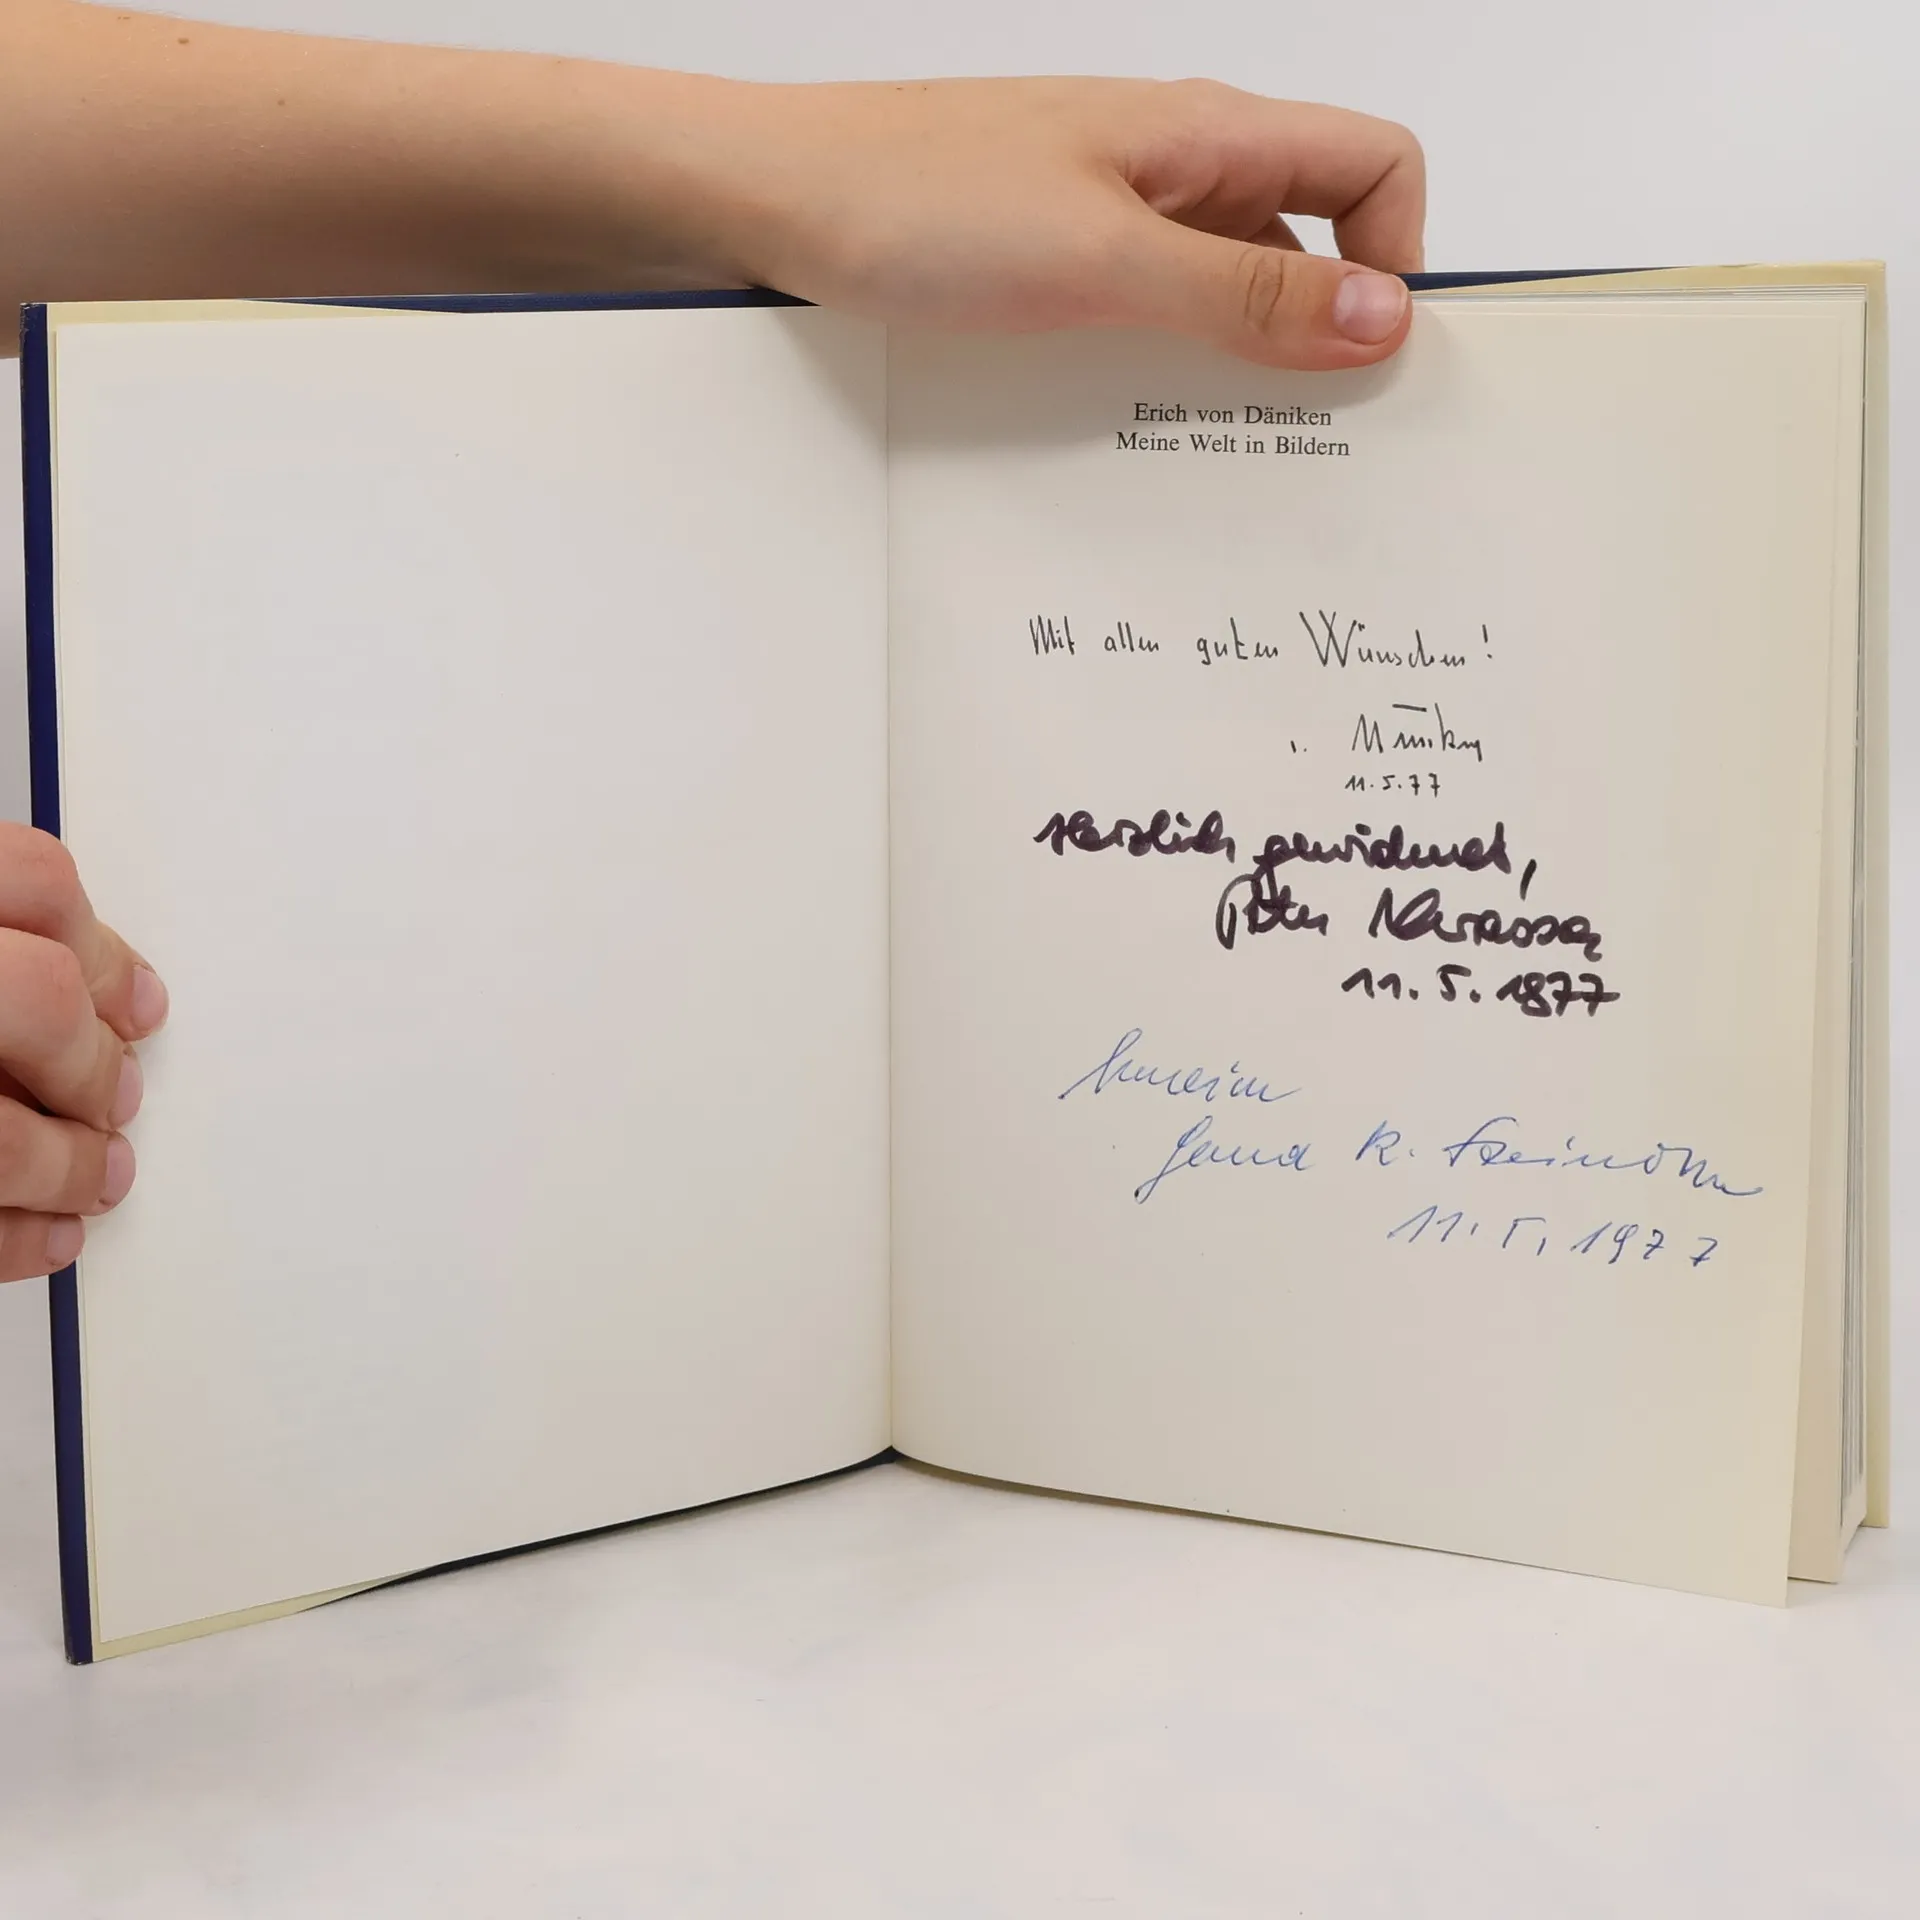 Erich von Däniken
Meine Welt in Bildern
Mit allen guten Wünschen!
11.5.77
Herzlich gewidmet,
Peter
11.5.1877
K.
11.5.1977